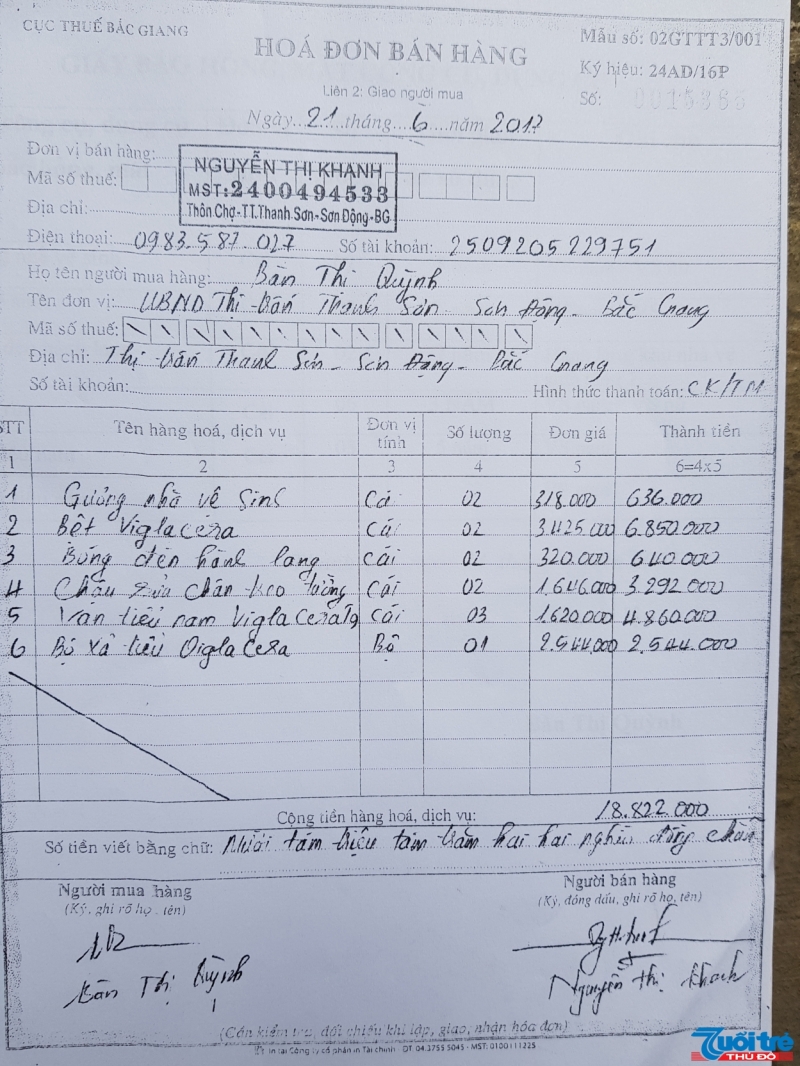 CỤC THUẾ BẮC GIANG
HOÁ ĐƠN BÁN HÀNG
Liên 2: Giao người mua
Ngày 21 tháng 6 năm 2017
Mẫu số: 02GTTT3/001
Ký hiệu: 24AD/16P
Số:
Đơn vị bán hàng:
NGUYỄN THỊ KHANH
Mã số thuế:
MST: 2400494533
Địa chỉ:
Thôn Chợ-TT.Thanh Sơn-Sơn Động-BG
Điện thoại: 0983.587.027 Số tài khoản: 2509205229751
Họ tên người mua hàng: Bàn Thị Quỳnh
Tên đơn vị: UBND Thị trấn Thanh Sơn - Sơn Động - Bắc Giang
Mã số thuế:
Địa chỉ: Thị trấn Thanh Sơn - Sơn Động - Bắc Giang
Số tài khoản: Hình thức thanh toán: CK/TM
STT Tên hàng hoá, dịch vụ Đơn vị tính Số lượng Đơn giá Thành tiền
1 2 3 4 5 6=4x5
1 Gương nhà vệ sinh Cái 02 318.000 636.000
2 Bệt Viglacera Cái 02 3.425.000 6.850.000
3 Bóng đèn hành lang Cái 02 320.000 640.000
4 Chậu rửa chân treo tường Cái 02 1.646.000 3.292.000
5 Van tiểu nam Viglacera Cái 03 1.620.000 4.860.000
6 Bộ xả tiểu Viglacera Bộ 01 2.544.000 2.544.000
Cộng tiền hàng hoá, dịch vụ: 18.822.000
Số tiền viết bằng chữ: Mười tám triệu tám trăm hai hai nghìn đồng chẵn
Người mua hàng
(Ký, ghi rõ họ, tên)
Người bán hàng
(Ký, đóng dấu, ghi rõ họ, tên)
Bàn Thị Quỳnh
Nguyễn Thị Khanh
(Cần kiểm tra, đối chiếu khi lập, giao, nhận hóa đơn)
In tại Công ty cổ phần in Tài chính ĐT: 04.3755 5045 - MST: 0100111225
Tuổi trẻ
THỦ ĐÔ